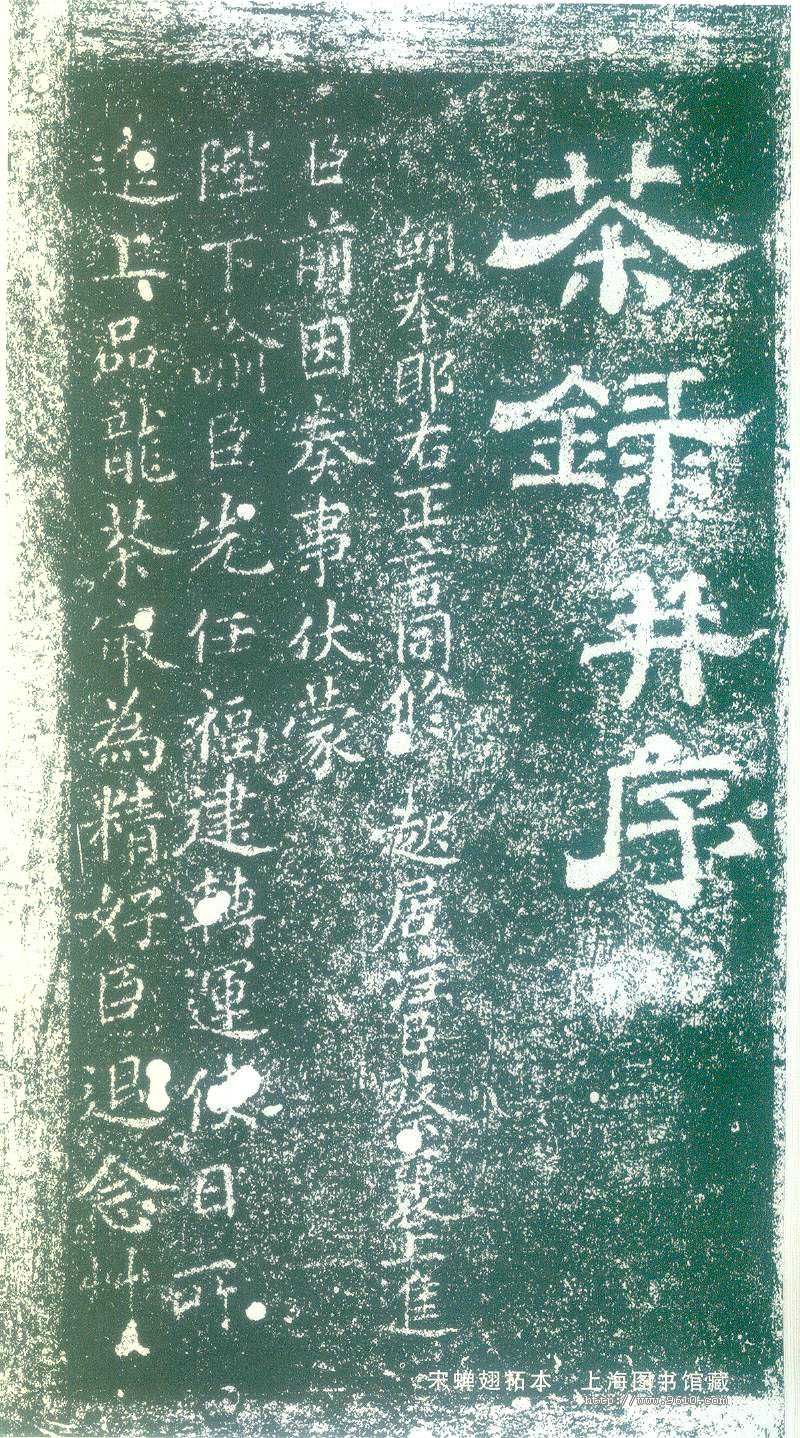 茶録并序
朝奉郎右正言同修起居注臣蔡襄上進
臣前因奏事伏蒙
陛下諭臣先任福建轉運使日所
進上品龍茶最為精好臣退念艸
宋蝉翅拓本 上海图书馆藏
http://www.9610.com